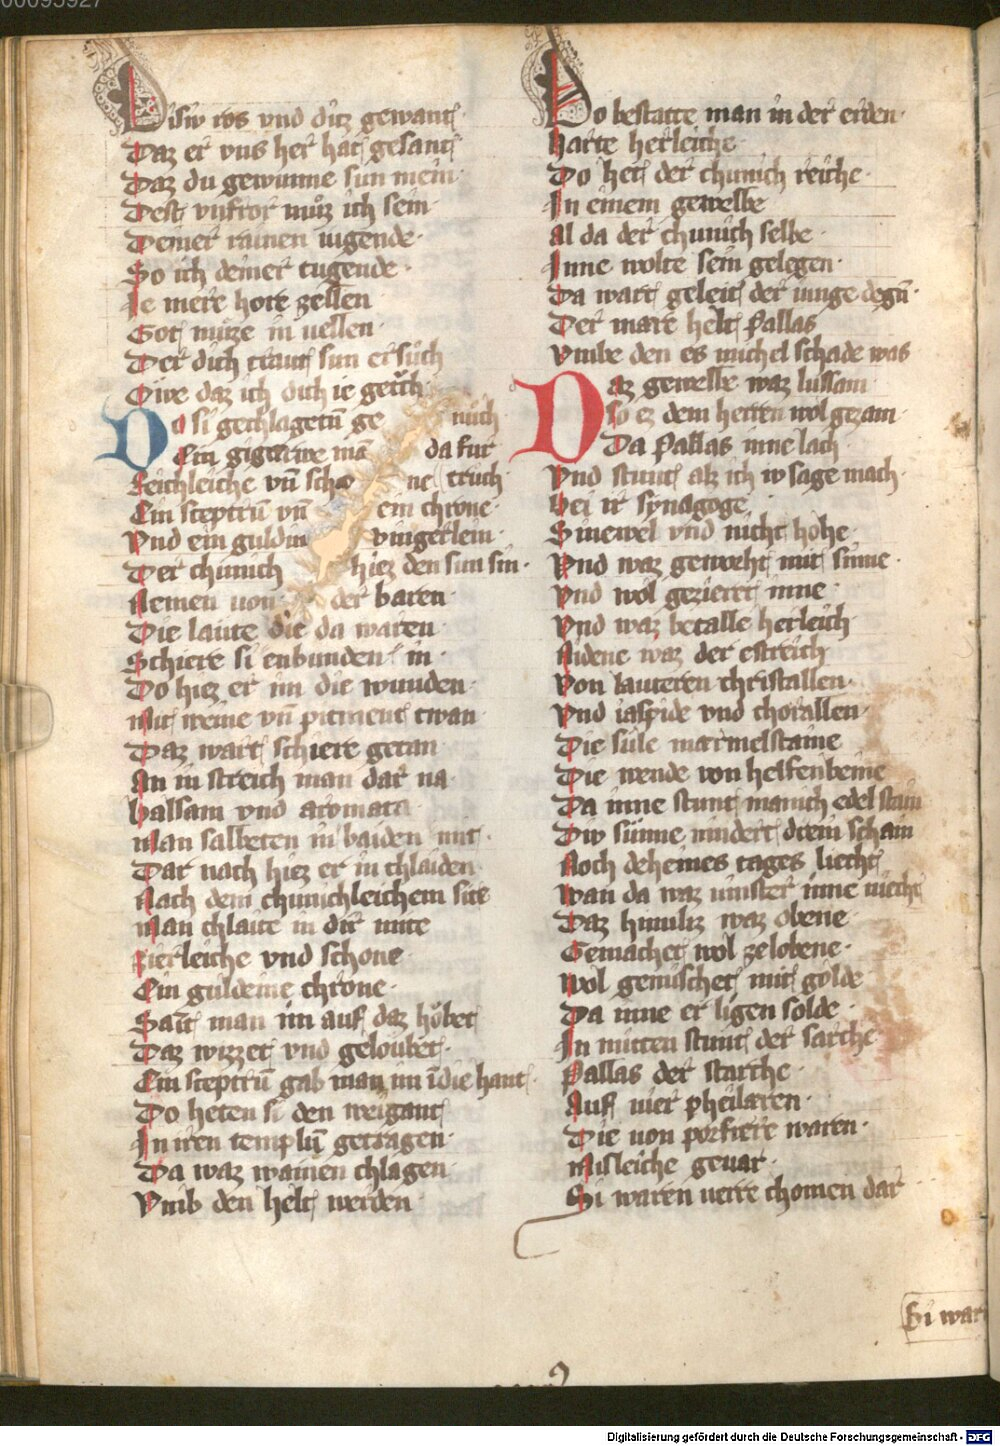 00095927
Disiv ros vnd ditz gewant
Daz er vns her hat gesant
Daz du gewunne sun mein
Dest vnfror muͦz ich sein
Deiner rainen iugende·
So ich deiner tugende·
Ie mere hore zellen
Got muͤze in uellen·
Der dich traut sun ersluͦch
Owe daz ich dich ie getruͦch
Do si gechlagetū ge nuͦch
Ein gigurwe mā da fur
Reichleiche vn̄ scho ne truͦch
Ein sceptrū vn̄ ein chrone·
Vnd ein guldin vingerlein·
Der chunich hiez den sun sin·
Nemen uon der baren·
Die laute die da waren
Schiere si enbunden in·
Do hiez er im die wunden·
Mit weine vn̄ pitment twan
Daz wart schiere getan
An in streich man dar na
Balsam vnd aromata
Man salbeten in baiden mit·
Dar nach hiez er in chlaiden
Nach dem chunichleichem site
Man chlaite in dir mite
Zierleiche vnd schone
Ein guldeine chrone·
Satzt man im auf daz hoͤbet
Daz wizzet vnd geloubet·
Ein sceptrū gab man im ī die hant·
Do heten si den weigant
In iren templū getragen·
Da waz wainen chlagen
Vmb den helt werden·
Do bestatte man in der erden·
Harte herleiche·
Do het der chunich reiche·
In einem gewelbe
Al da der chunich selbe·
Inne wolte sein gelegen·
Da wart geleit der iunge degn̄·
Der mare helt Pallas
Vmbe den es michel schade was
Daz gewelbe waz lussam
So ez dem herren wol gezam·
Da Pallas inne lach
Vnd stunt alz ich iv sage mach·
Bei ir synagoge
Sinewel vnd nicht hohe·
Vnd waz geworht mit sinne·
Vnd wol gezieret inne·
Vnd waz betalle herleich
Nidene waz der estreich
Von lauteren christallen·
Vnd iaspide vnd chorallen·
Die sule marmelstaine
Die wende von helfenbeine
Da inne stunt manich edel stain
Div sunne nindert drein schain
Noch deheines tages liecht
Wan da waz uinster inne niecht
Daz himiliz waz obene·
Gemachet wol ze lobene·
Wol gemischet mit golde
Da inne er ligen solde·
In mitten stunt der sarche
Pallas der starche·
Auf uier pheilaren·
Die uon porfiere waren·
Misleiche geuar·
Si waren uerre chomen dar
Si war
Digitalisierung gefördert durch die Deutsche Forschungsgemeinschaft - DFG